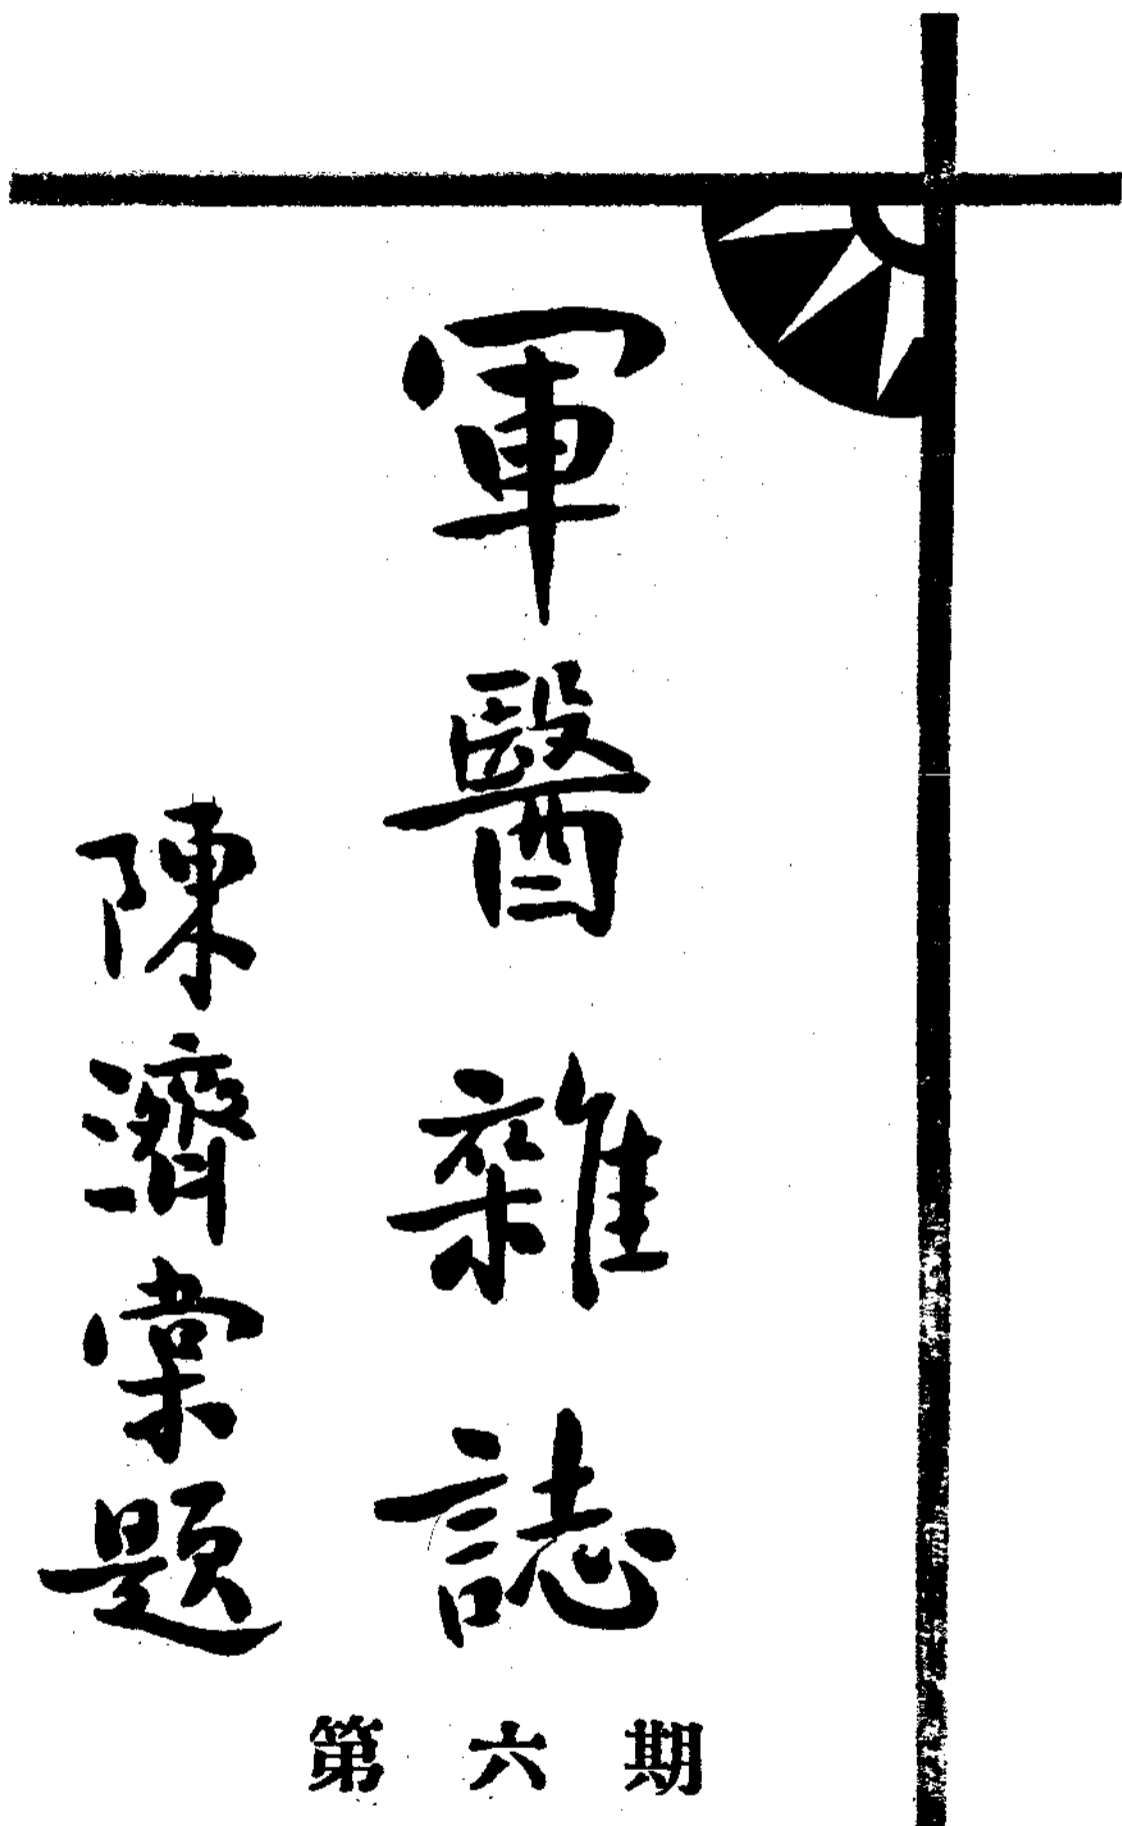 軍醫雜誌
陳濟棠題
第六期